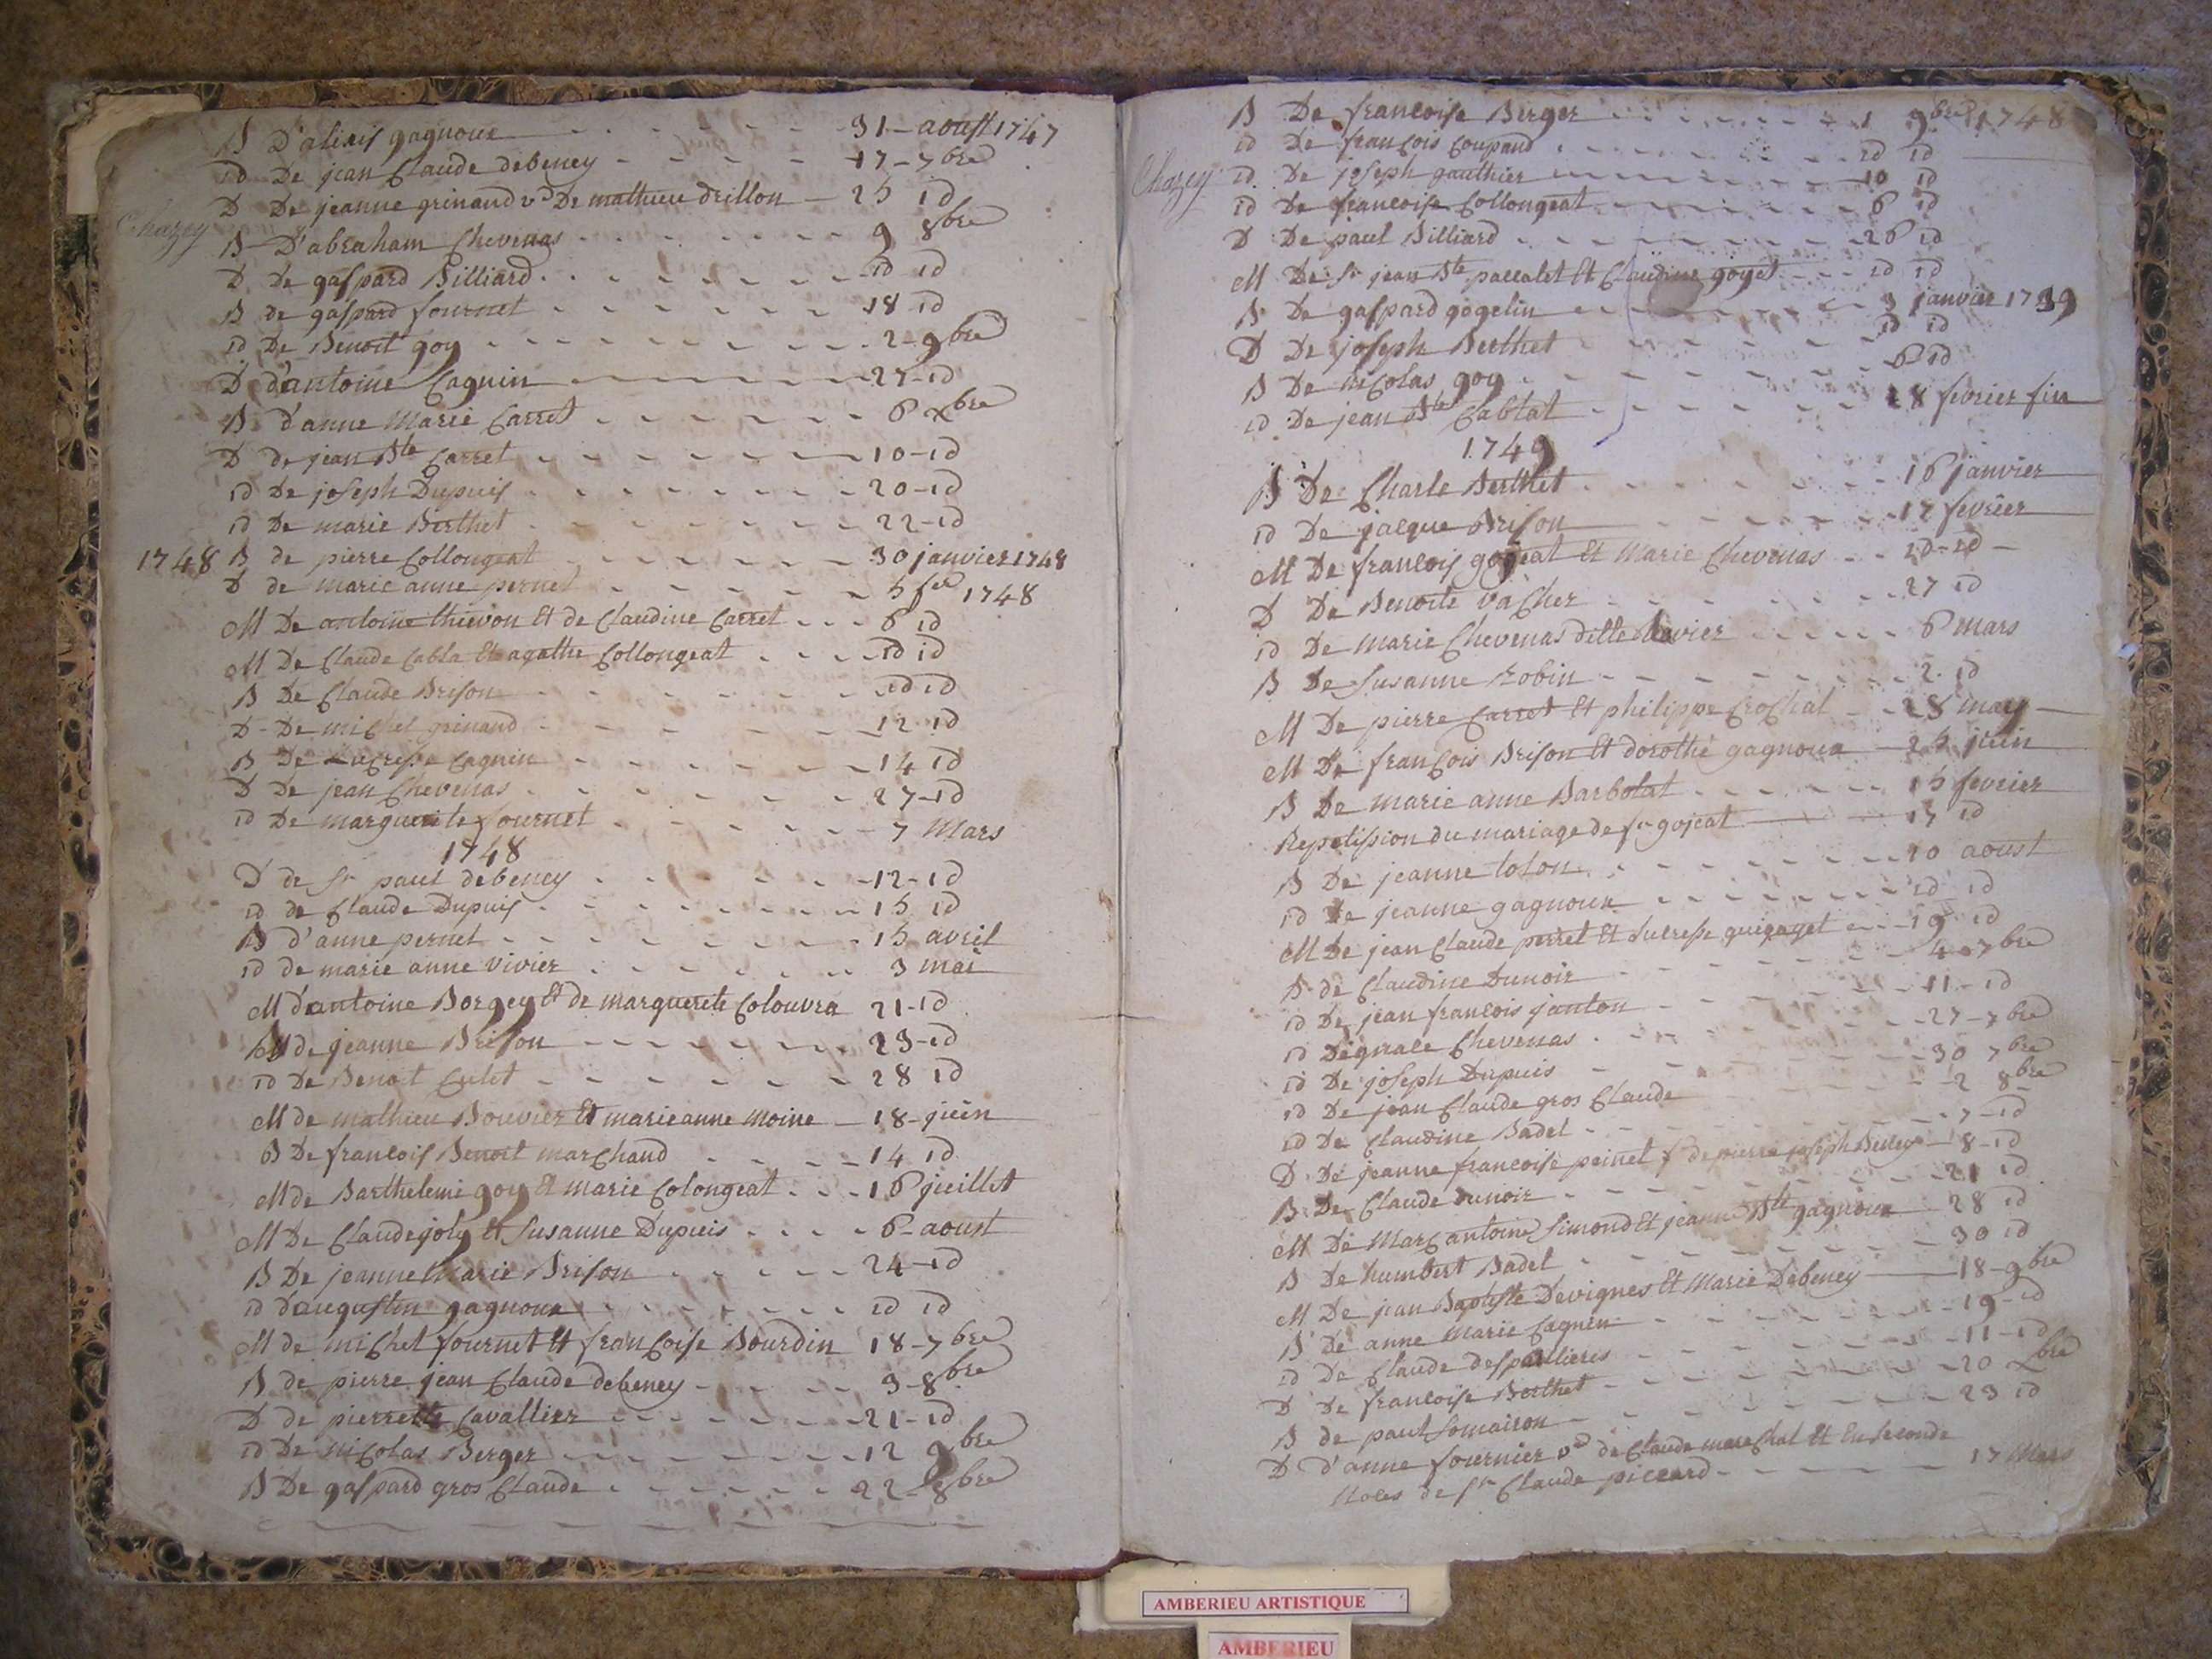 B D'alexis gagnoux 31 - aoust 1747
id De jean Claude debeney 17 - 7bre
D De jeanne grinand vd De mathieu drillon 25 id
Chazey
B D'abraham Chevenas 9 8bre
D De gaspard Billiard id id
B de gaspard fournet 18 id
id De Benoit goy 2 - 9bre
D d'antoine Cagnin 27 - id
B d'anne Marie Carret 6 xbre
D de jean Bte Carret 10 - id
id De joseph Dupuis 20 - id
id De marie Berthet 22 - id
1748 B de pierre Collongeat 30 janvier 1748
D de marie anne pernet 5 fer 1748
M De antoine thievon Et de Claudine Carret 6 id
M De Claude Cabla Et agathe Collongeat id id
B De Claude Brison id id
D - De michel grinand 12 id
B De Lucresse Cagnin 14 id
D De jean Chevenas 27 - id
id De marguerite fournet 7 Mars
1748
D de Sr paul debeney 12 - id
id de Claude Dupuis 15 id
B d'anne pernet 15 avril
id de marie anne vivier 3 mai
M d'antoine Borgey Et de marguerite Colouvra 21 - id
B de jeanne Brison 23 - id
id De Benoit Culet 28 id
M de mathieu Bouvier Et marie anne moine 18 - juin
B De francois Benoit marChand 14 id
M de Barthelemi goy Et marie Colongeat 16 juillet
M De Claude joly Et Susanne Dupuis 6 - aoust
B De jeanne Marie Brison 24 - id
id d'augustin gagnoux id id
M de miChel fournet Et francoise Bourdin 18 - 7bre
B de pierre jean Claude debeney 3 - 8bre
D de pierrette Cavallier 21 - id
id De niColas Berger 12 9bre
B De gaspard gros Claude 22 - 8bre
B De francoise Berger 1 9bre 1748
id De francois Coupand id id
Chazey id De joseph gauthier 10 id
id De francoise Collongeat 6 id
D De paul Billiard 26 id
M De Sr jean Bte pallatet Et Claudine goyet id id
B De gaspard gogelin 3 janvier 1739
D De joseph Berthet id id
B De niColas goy 6 id
id De jean Bte Cablat 18 fevrier fin
1749
B De Charle Berthet 16 janvier
id De jacque Brison 17 fevrier
M De francois gojeat Et Marie Chevenas id - id
D De Benoite vaCher 27 id
id De marie Chevenas ditte 6 mars
B De Susanne robin 2 id
M De pierre Carret Et philippe CroChat 28 may
M De francois Brison Et dorothé gagnoux 25 juin
B De marie anne Barbotat 15 fevrier
Repetission du mariage de fr gojeat 17 id
B De jeanne toton 10 aoust
id De jeanne gagnoux id id
M De jean Claude perret Et Lucresse guigaget 19 id
B de Claudine Dunoir 4 - 7bre
id De jean francois janton 11 - id
id D'ignace Chevenas 27 - 7bre
id De joseph Dupuis 30 7bre
id De jean Claude gros Claude 2 8bre
id De Claudine Badel 7 - id
D De jeanne francoise peinet f de pierre joseph 8 - id
B De Claude dunoir 21 id
M De MarC antoine Simond Et jeanne Bte gagnoux 28 id
B De humbert Badel 30 id
M De jean Baptiste Devignes Et Marie Debeney 18 - 9bre
B De anne Marie Cagnin 19 - id
id De Claude despallieres 11 - id
D De francoise Berthet 20 xbre
B de paul Lomairon 23 id
D d'anne fournier vd de Claude mareChal Et En seconde
noces de Sr Claude piccard 17 Mars
AMBERIEU ARTISTIQUE
AMBERIEU